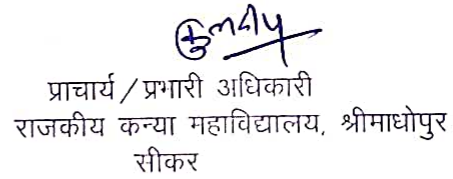 कुलदीप
प्राचार्य / प्रभारी अधिकारी
राजकीय कन्या महाविद्यालय, श्रीमाधोपुर
सीकर